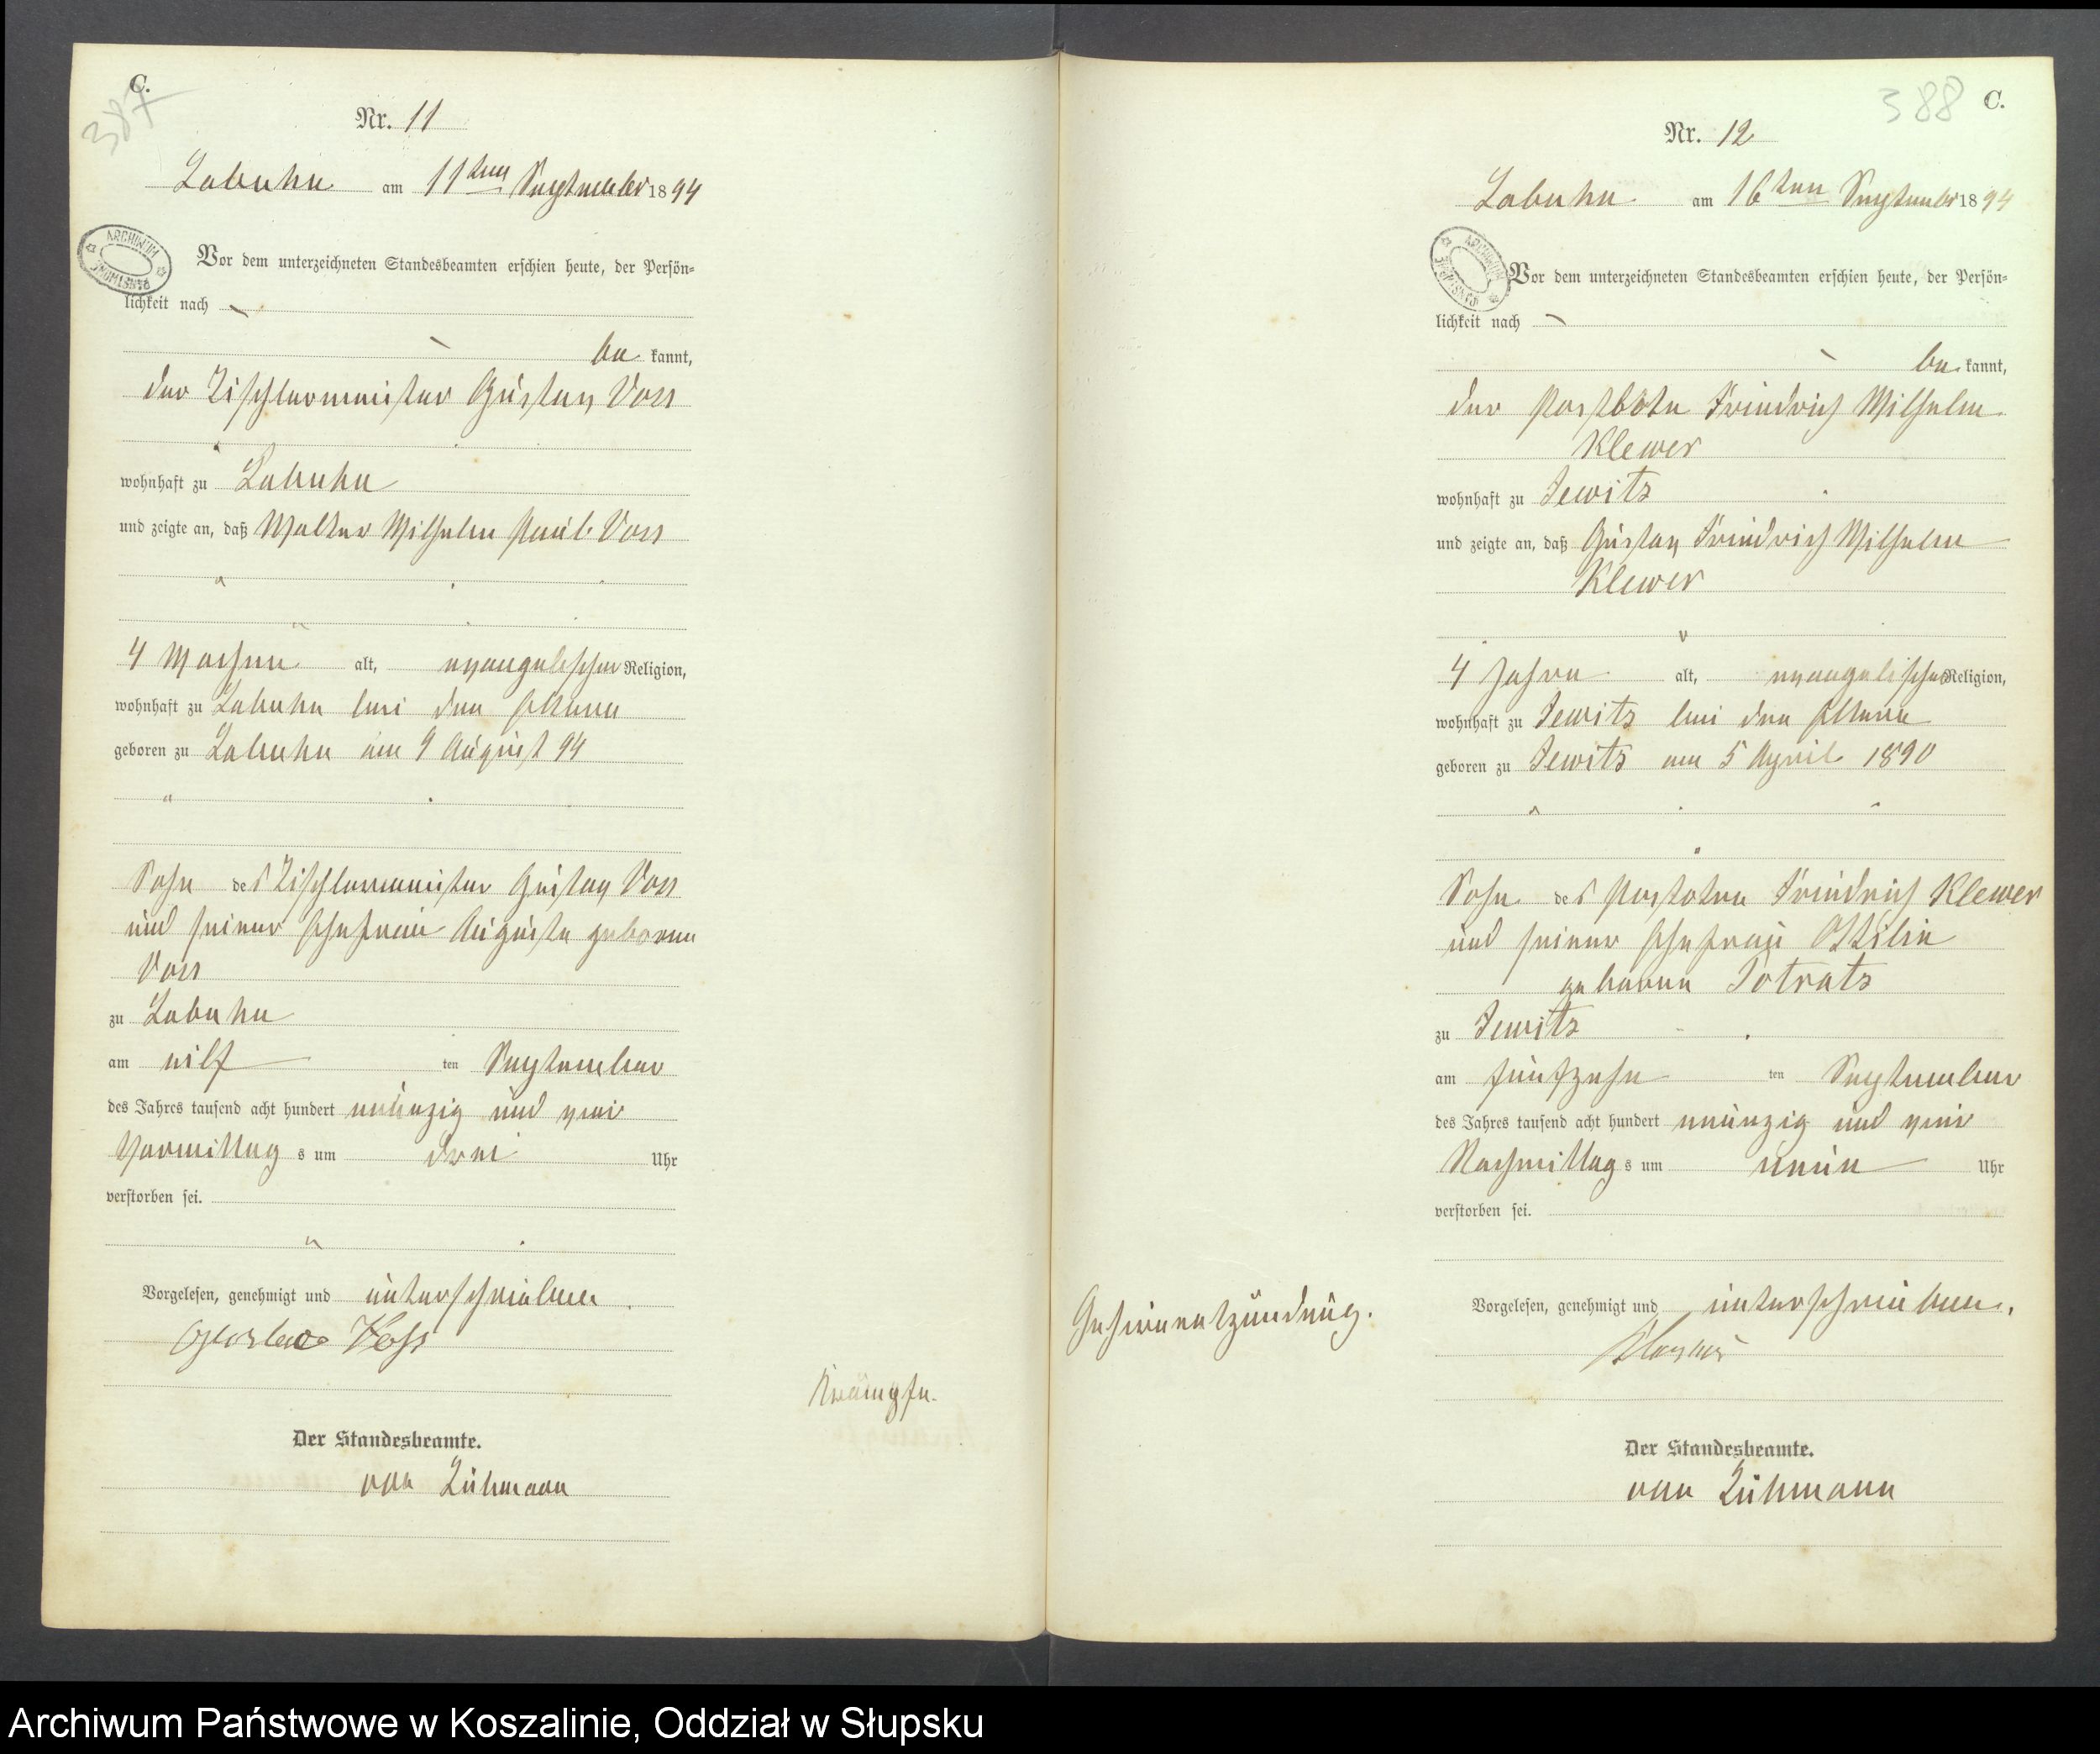 C.
387
Nr. 11
Labuhn am 11ten September 1894
ARCHIWUM PAŃSTWOWE
Vor dem unterzeichneten Standesbeamten erschien heute, der Persön=
lichkeit nach
be kannt,
der Tischlermeister Gustav Voss
wohnhaft zu Labuhn
und zeigte an, daß Walter Wilhelm Paul Voss
4 Wochen alt, evangelischer Religion,
wohnhaft zu Labuhn bei den Eltern
geboren zu Labuhn am 9 August 94
Sohn des Tischlermeister Gustav Voss
und seiner Ehefrau Auguste geborene
Voss
zu Labuhn
am eilf ten September
des Jahres tausend acht hundert neunzig und vier
Vormittag s um drei Uhr
verstorben sei.
Vorgelesen, genehmigt und unterschrieben.
Gustav Voss
Krämpfe.
Der Standesbeamte.
von Lühmann
388 C.
Nr. 12
Labuhn am 16ten September 1894
ARCHIWUM PAŃSTWOWE
Vor dem unterzeichneten Standesbeamten erschien heute, der Persön=
lichkeit nach
be kannt,
der Postbote Friedrich Wilhelm
Klewer
wohnhaft zu Jewitz
und zeigte an, daß Gustav Friedrich Wilhelm
Klewer
4 Jahre alt, evangelischer Religion,
wohnhaft zu Jewitz bei den Eltern
geboren zu Jewitz am 5 April 1890
Sohn des Postboten Friedrich Klewer
und seiner Ehefrau Ottilie
geborene Potratz
zu Jewitz
am fünfzehn ten September
des Jahres tausend acht hundert neunzig und vier
Nachmittag s um neun Uhr
verstorben sei.
Gehirnentzündung.
Vorgelesen, genehmigt und unterschrieben.
Der Standesbeamte.
von Lühmann
Archiwum Państwowe w Koszalinie, Oddział w Słupsku